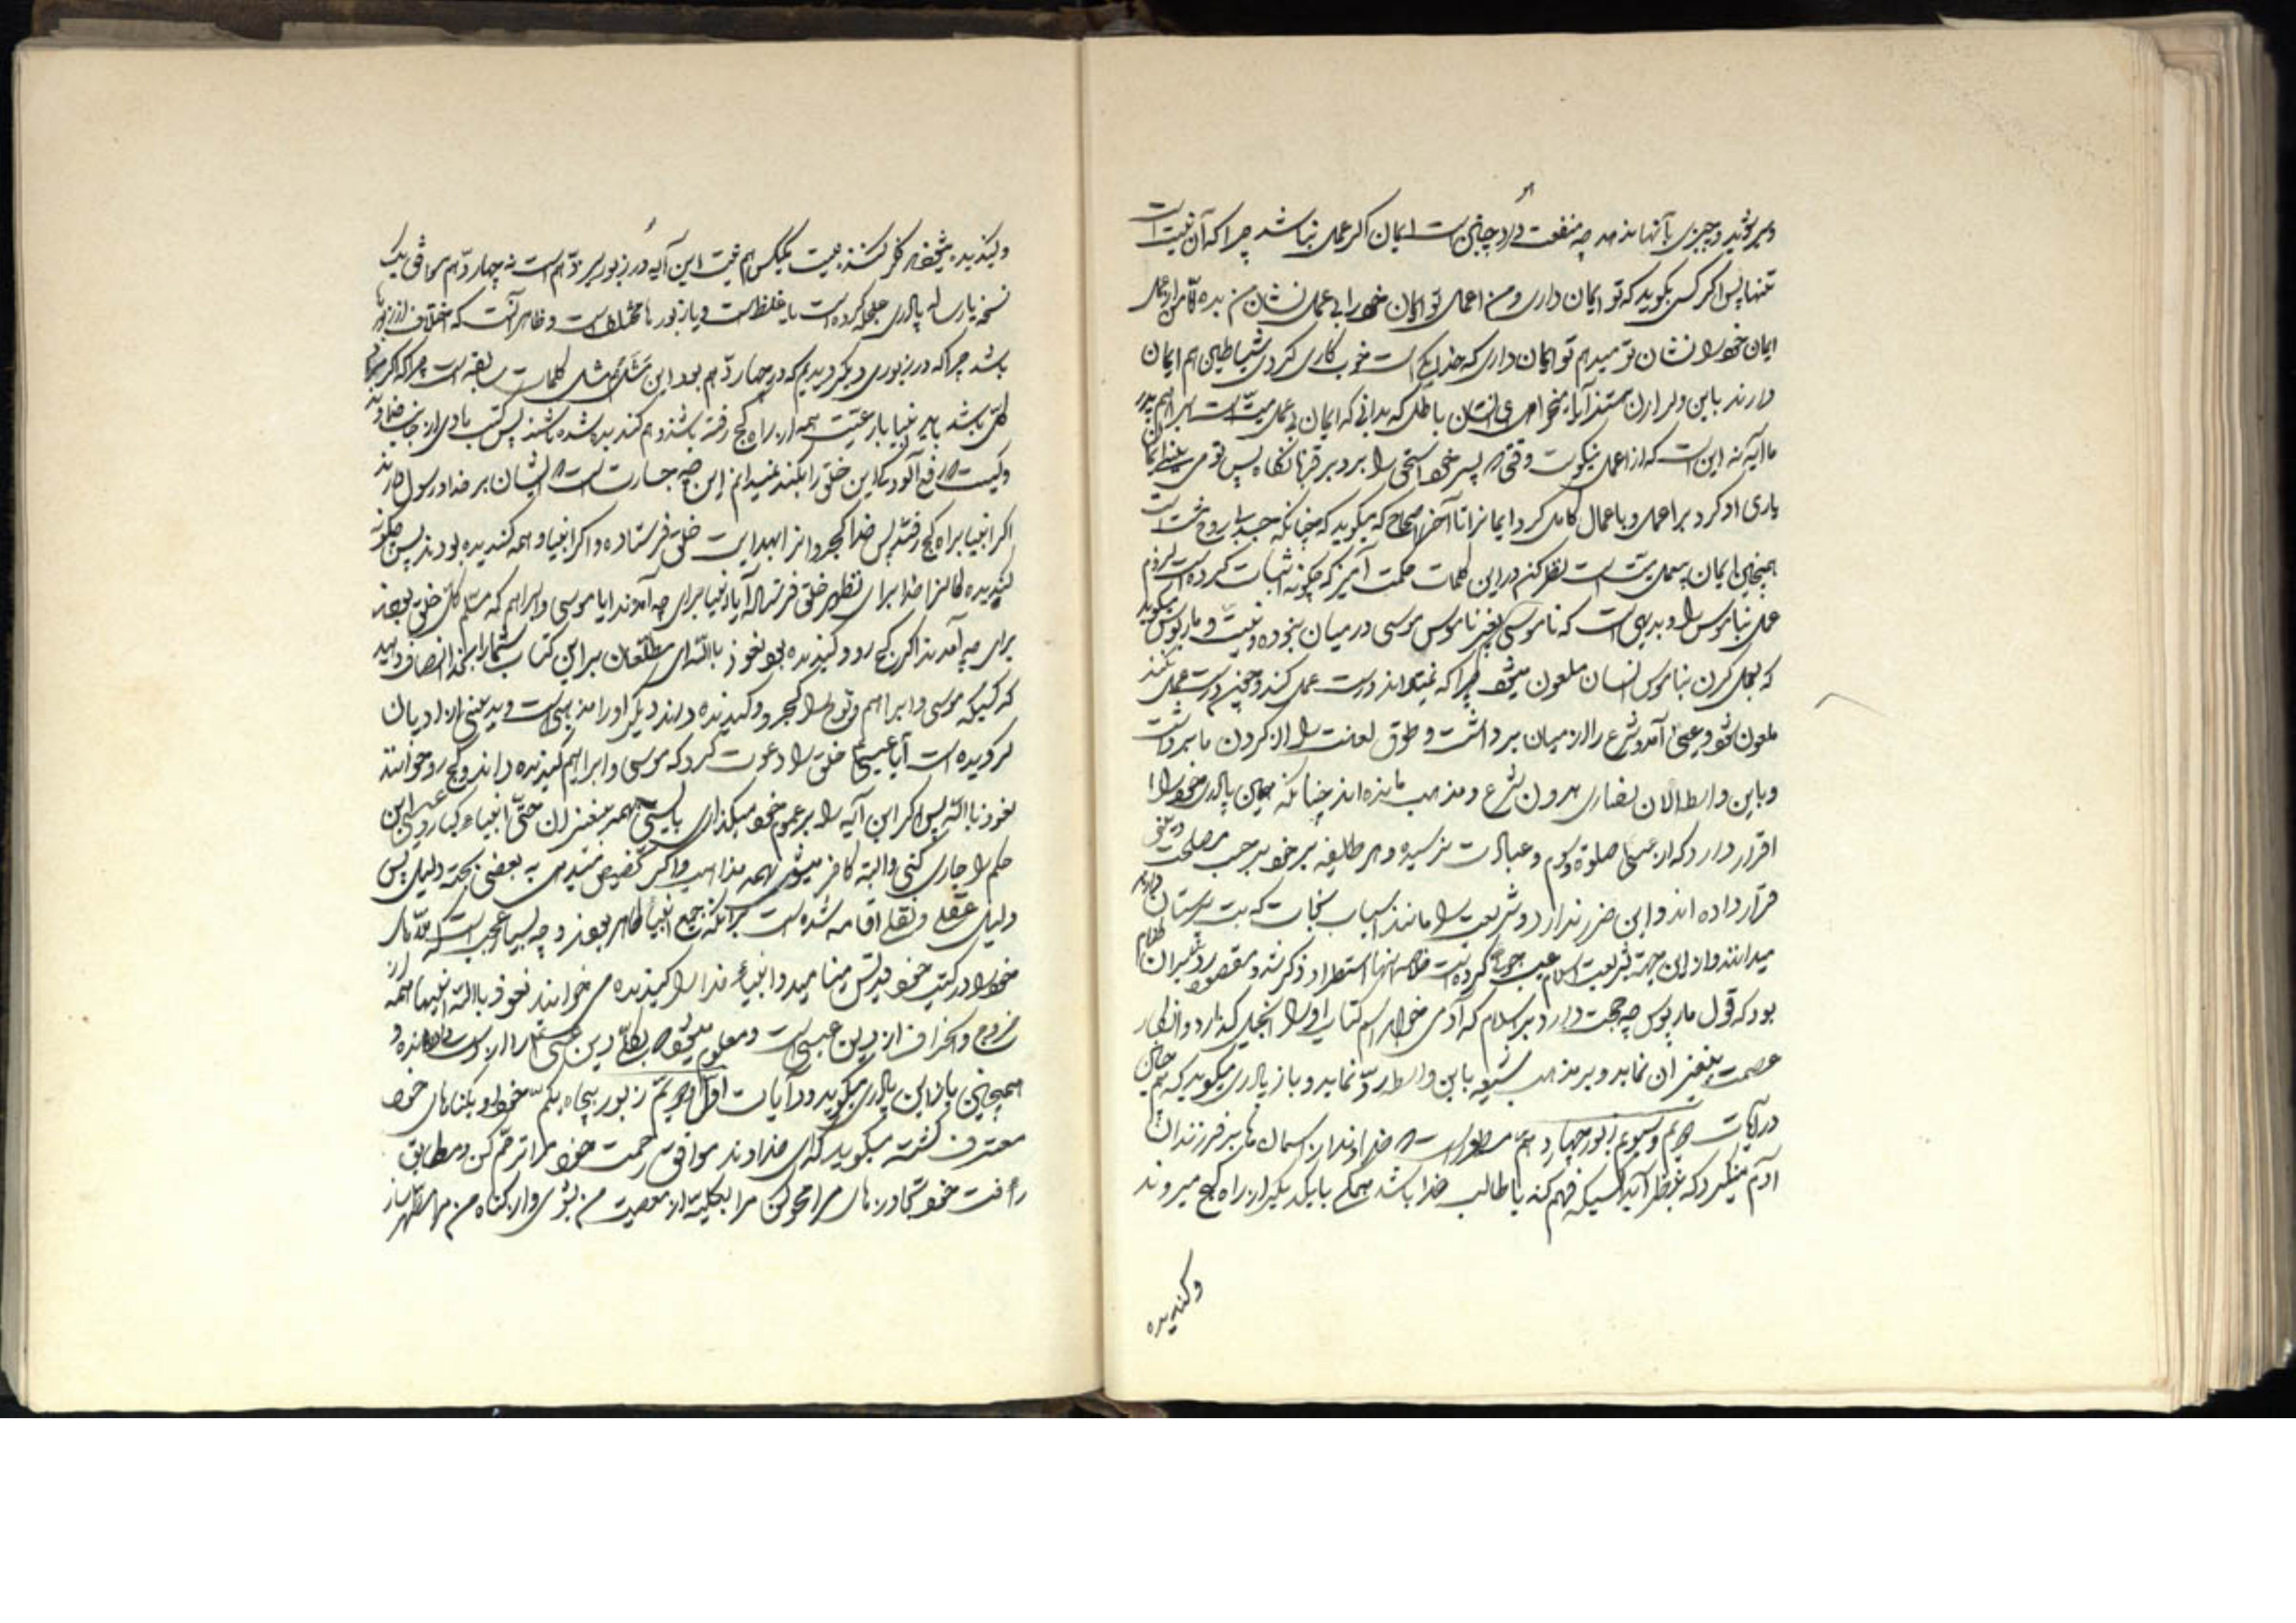 و چیزی بآنها ندهد چه منفعت دارد چنین است ایمان اکر عمل نباشد چرا که آن نیت است
تنها پس اکر کسی بکوید که تو ایمان داری و من اعمال تو ایمان خود را بی عمل نشان من بده تا من از عمل
ایمان خود را نشان تو میدهم تو ایمان داری که خدا یکی است خوب کاری کردی شیاطین هم ایمان
دارند باین و لرزان هستند آیا میخواهی ای انسان باطل که بدانی که ایمان بی عمل میت است ابراهیم پدر
ما آیا نه این است که از اعمال نیکوست وقتی که پسر خود اسحق را برد بر قربانکاه پس تو می بینی ایمان
یاری او کرد بر اعمال و باعمال کامل کرد ایمانرا تا آخر اصحاح که میکوید که چنانکه جسد بی روح میت است
همچنین ایمان بی عمل میت است نظر کنم در این کلمات حکمت آمیز که چکونه اثبات کرده است لزوم
عمل بناموس را و بدیهی است که ناموسی بغیر ناموس موسی در میان نبوده و نیست و مار پولس میکوید
که بعمل کردن بناموس انسان ملعون میشود چرا که نمیتواند درست عمل کند و چون درست عمل نکند
ملعون شود و عیسی آمد و شرع را از میان برداشت و طوق لعانت را از کردن ما برداشت
و باین واسطه الان نصاری بدون شرع و مذهب مانده اند چنانکه همین پادری خود را
اقرار دارد که از عیسی صلوة و صوم و عبادت نرسیده و هر طایفه بر خود بر حسب مصلحت وقتی
قرار داده اند و این ضرر ندارد و شریعت را مانند اسباب نجات که بت پرستان دارند
میدانند و از این جهة شریعت اسلام عیب جوئی کرده است خلاصه اینها استطراد ذکر شد و مقصود در میان کلام
بود که قول مار پولس چه حجت دارد بر اسلام که آدمی میخواهد اسم کتاب او را انجیل گذارد و انکار
عصمت پیغمبران نماید و بر مذهب شیعه باین واسطه ردّ نماید و باز پادری میکوید که هم چنین
در آیات دویم و سیوم زبور چهاردهم مسطور است که خداوند از آسمان ها بر فرزندان
آدم مینکرد که بنظر آید کسیکه فهم کند یا طالب خدا باشد همکی با یکدیگر از راه کج میروند
و کندیده
و کندیده میشوند نکو کننده نیست یکیکس هم نیست این آیه در زبور سیزدهم است نه چهاردهم موافق یک
نسخه یا رساله پادری عجله کرده است یا غلط است و یا زبور ها مختلف است و ظاهر آنست که اختلاف از زبورها
باشد چرا که در زبوری دیکر دیدیم که در چهاردهم بود این مثل هم مثل کلمات سابقه است چرا که اکر
کلی باشد باید انبیا با رعیت همه از راه کج رفته باشند و هم کندیده شده باشند پس کتب هادی از جانب خداوند
و کیست که رفع آلودکی این خلق را بکند نمیدانم این چه جسارت است که ایشان بر خدا و رسول دارند
اکر انبیا براه کج رفتند پس خدا کجروانرا بهدایت خلق فرستاده و اکر انبیا و همه کندیده بودند پس چکونه
کندیده کانرا خدا برای تطهیر خلق فرستاد آیا انبیا برای چه آمدند آیا موسی و ابراهیم که مسلم کل خلق بودند
برای چه آمدند اکر کج رو و کندیده بود نعوذ بالله ای مطلعان بر این کتاب شما را بخدا انصاف دهید
که کسیکه موسی و ابراهیم و نوح را کجرو و کندیده داند دیگر او را مذهبی است و بدینی از ادیان
کرویده است آیا عیسی خلق را دعوت کرد که موسی و ابراهیم کندیده داند و کج رو خوانند
نعوذ بالله پس اکر این آیه را بر عموم خود میکذاری بایستی بهمه پیغمبران حتی انبیاء کبار و عیسی این
حکم را جاری کنی و البته کافر میشوی بهمه مذاهب و اکر تخصیص میدهی به بعضی بچه دلیل پس
دلیل عقلی و نقلی اقامه شده است بر آنکه جمیع انبیا طاهر بودند و چه بسیار عجب است که ملّاهای
خود را در کتب خود قدیس مینامید و انبیاء خدا را کندیده می خوانید نعوذ بالله اینها همه از
خروج و انحراف از دین عیسی است و معلوم میشود که بکلی دین عیسی را از دست داده و
همچنین باز این پادری میکوید در آیات اول و دویم زبور پنجاه یکم خود و بکناهای خود
معترف کشته میکوید که ای خداوند موافق رحمت خود مرا ترحّم کن و مطابق
رأفت خود تجاوزهای مرا محو کن مرا بکلیه از معصیت من بشوی و از کناه من مرا مطهر ساز